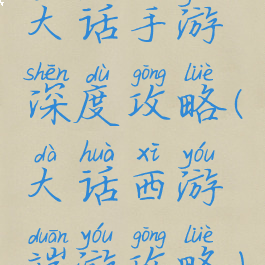 大话手游
shēn dù gōng lüè
深度攻略(
dà huà xī yóu
大话西游
duān yóu gōng lüè
端游攻略)